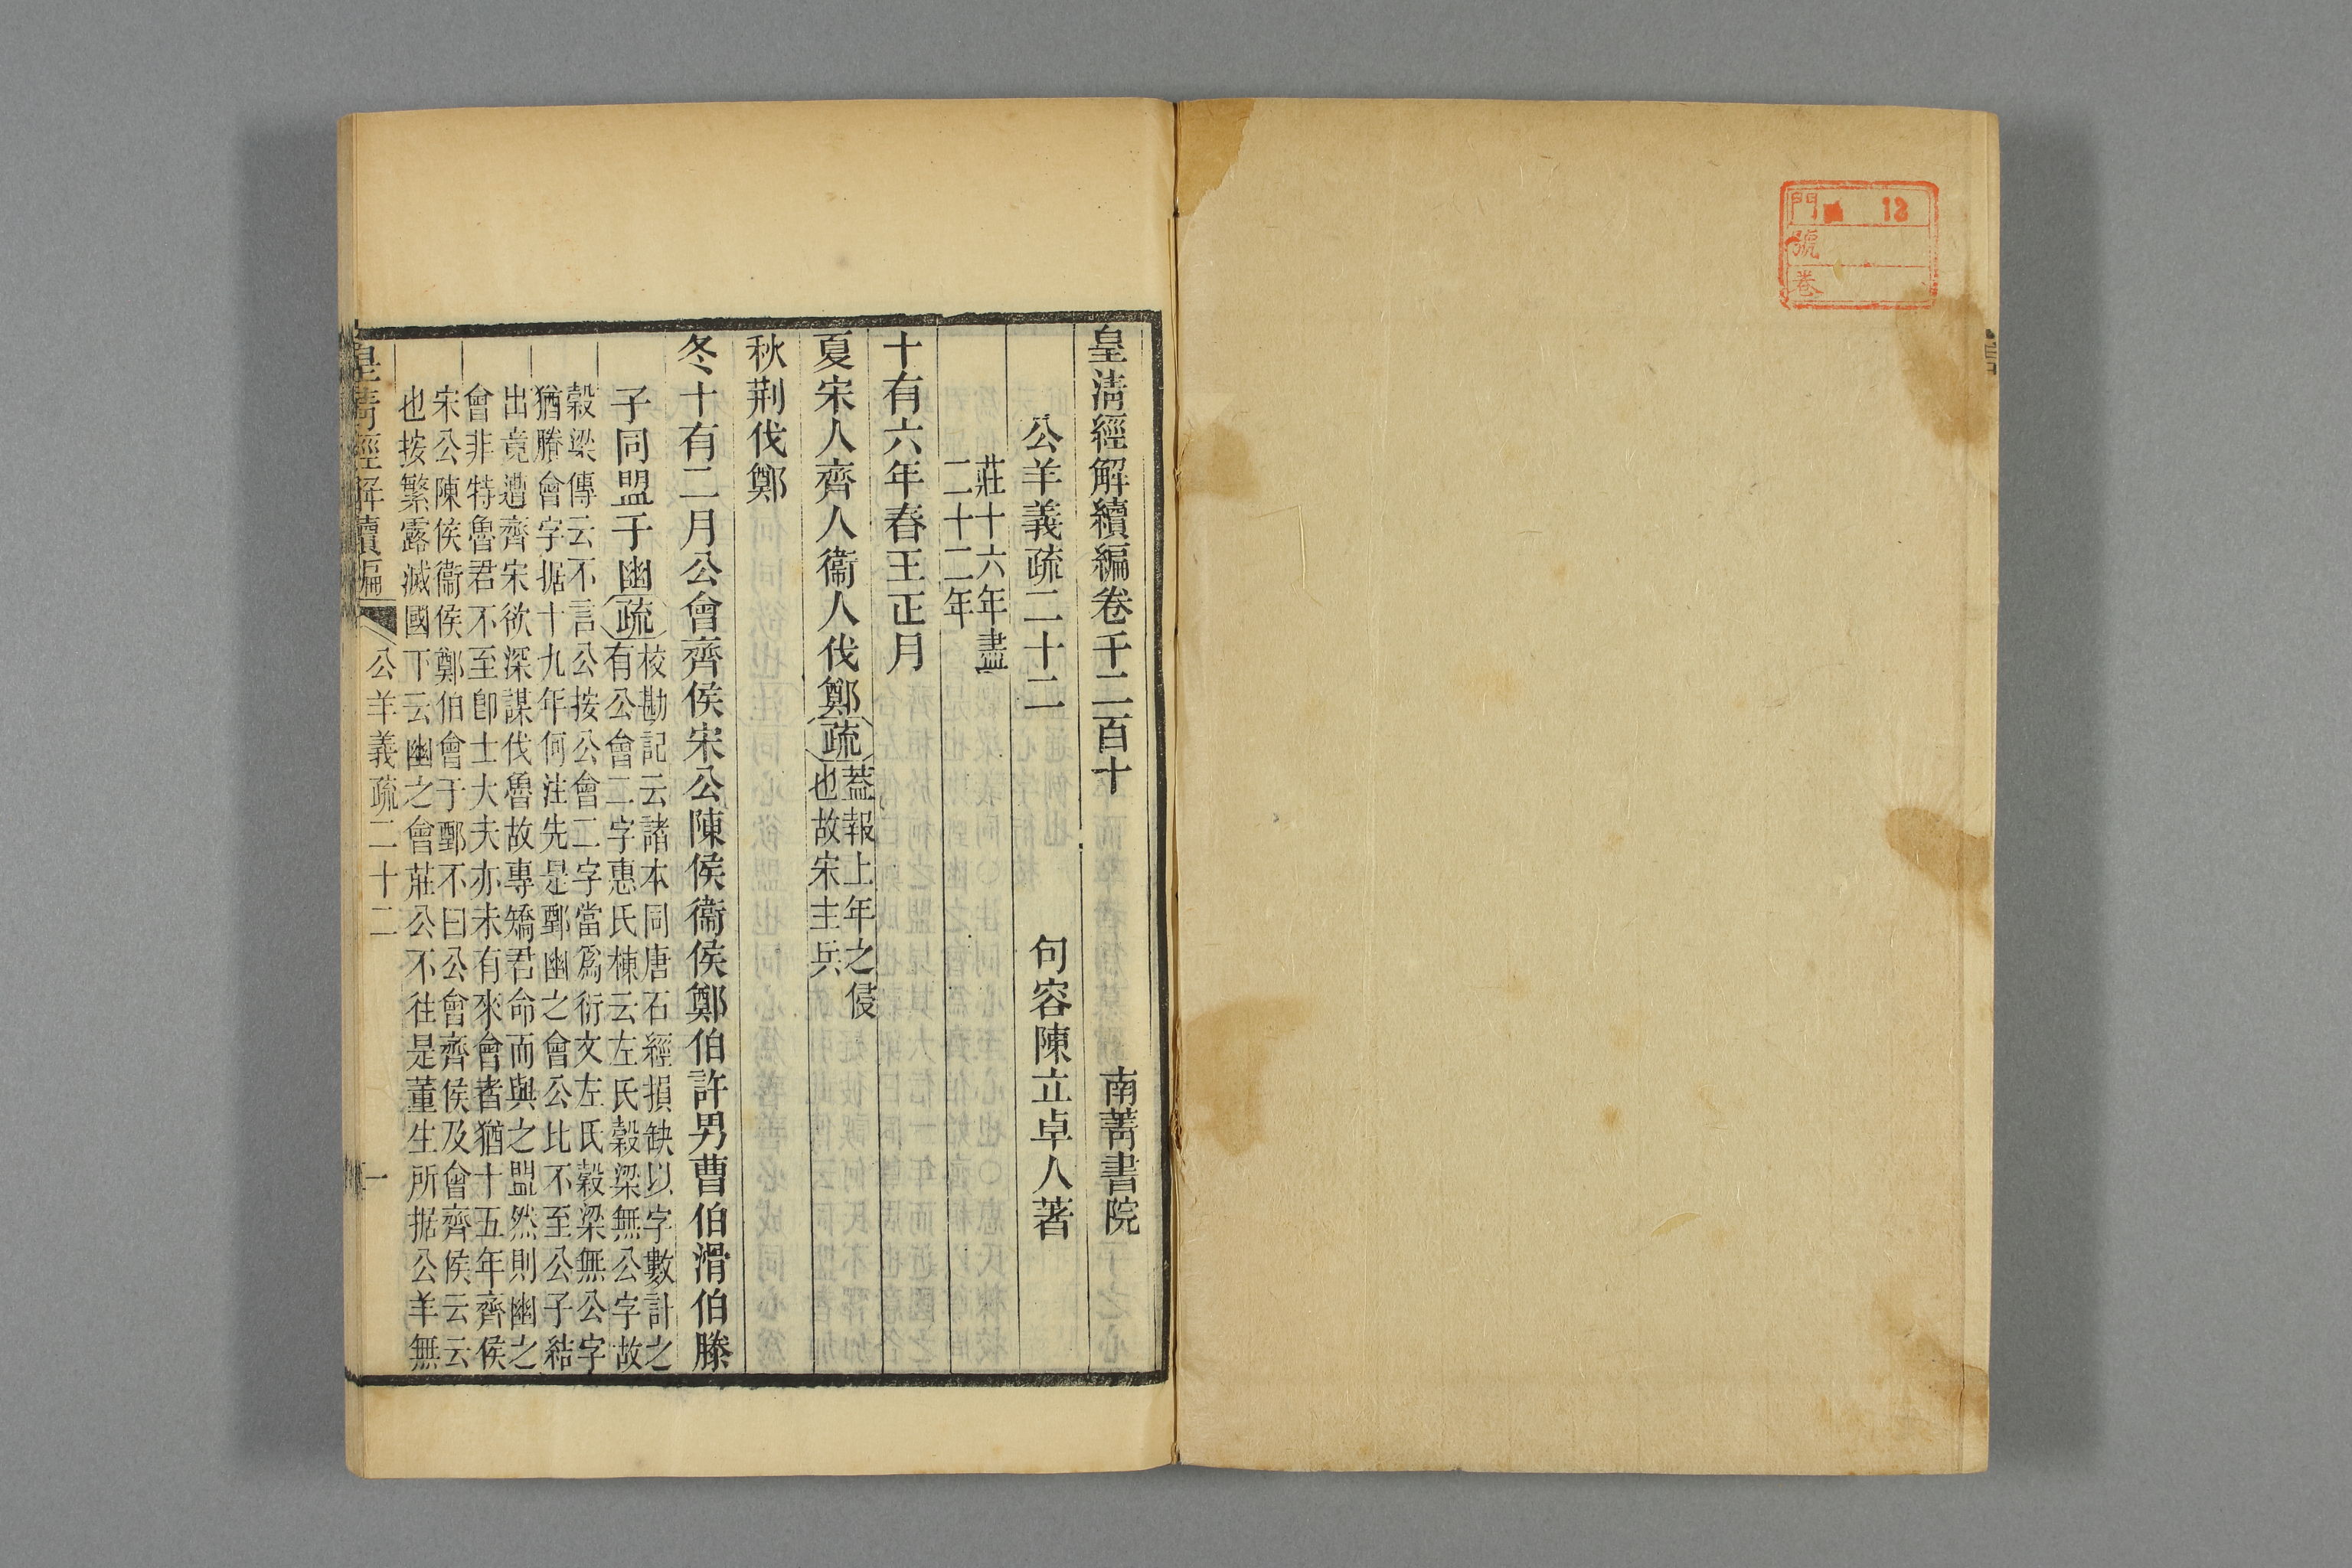 門 13
號
卷
皇清經解續編卷千二百十
南菁書院
公羊義疏二十二
句容陳立卓人著
莊十六年盡
二十二年
十有六年春王正月
夏宋人齊人衞人伐鄭疏蓋報上年之侵
也故宋主兵
秋荆伐鄭
冬十有二月公會齊侯宋公陳侯衞侯鄭伯許男曹伯滑伯滕
子同盟于幽疏校勘記云諸本同唐石經損缺以字數計之
有公會二字惠氏棟云左氏穀梁無公字故
穀梁傳云不言公按公會二字當爲衍文左氏穀梁無公字
猶賸會字据十九年何注先是鄄幽之會公比不至公子結
出竟遭齊宋欲深謀伐魯故專矯君命而與之盟然則幽之
會非特魯君不至卽士大夫亦未有來會者猶十五年齊侯
宋公陳侯衞侯鄭伯會于鄄不曰公會齊侯及會齊侯云云
也按繁露滅國下云幽之會莊公不往是董生所据公羊無
皇清經解續編
公羊義疏二十二
一